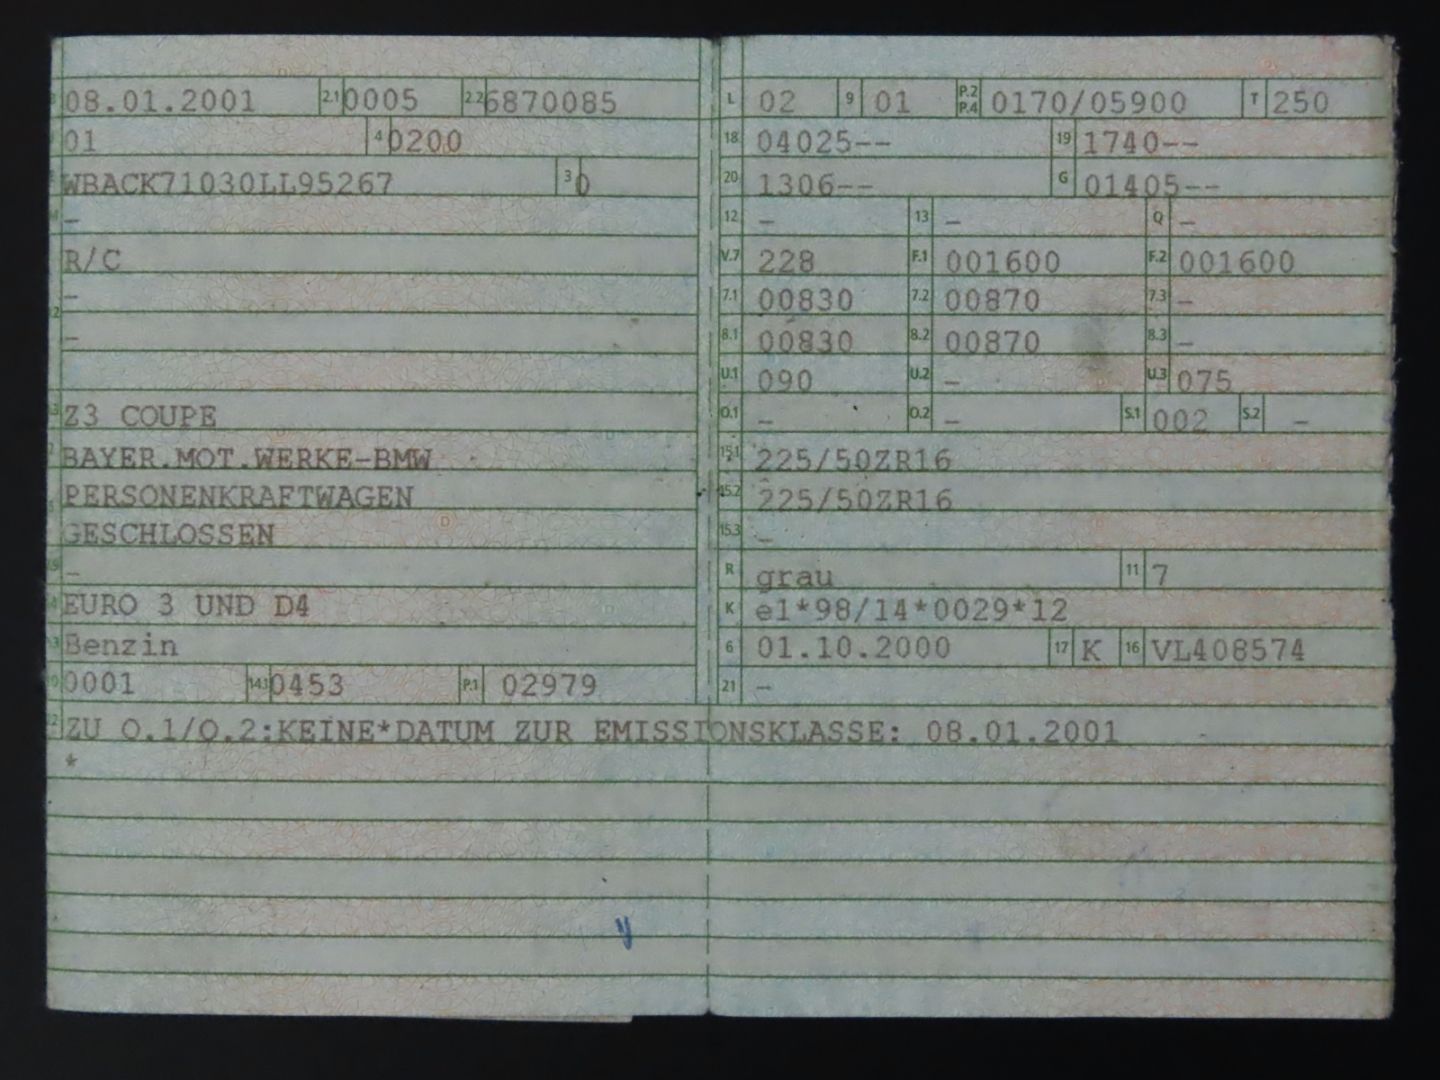 08.01.2001 2.1 0005 2.2 6870085
01 4 0200
WBACK71030LL95267 3 0
-
R/C
-
-
Z3 COUPE
BAYER.MOT.WERKE-BMW
PERSONENKRAFTWAGEN
GESCHLOSSEN
-
EURO 3 UND D4
Benzin
0001 14.1 0453 P.1 02979
L 02 9 01 P.2 P.4 0170/05900 T 250
18 04025-- 19 1740--
20 1306-- G 01405--
12 - 13 - Q -
V.7 228 F.1 001600 F.2 001600
7.1 00830 7.2 00870 7.3 -
8.1 00830 8.2 00870 8.3 -
U.1 090 U.2 - U.3 075
O.1 - O.2 - S.1 002 S.2 -
15.1 225/50ZR16
15.2 225/50ZR16
15.3 -
R grau 11 7
K e1*98/14*0029*12
6 01.10.2000 17 K 16 VL408574
21 -
22 ZU O.1/O.2:KEINE*DATUM ZUR EMISSIONSKLASSE: 08.01.2001
*